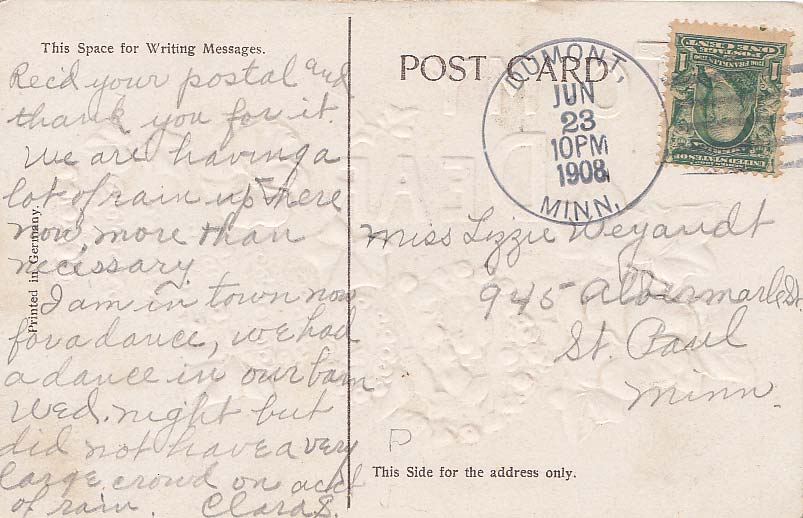 This Space for Writing Messages.
Rec'd your postal and
thank you for it.
We are having a
lot of rain up here
now, more than
necissary.
I am in town now
for a dance, we had
a dance in our barn
Wed. night but
did not have a very
large crowd on acct
of rain. Clara S.
Printed in Germany.
POST CARD
DUMONT,
JUN
23
10PM
1908
MINN.
POSTAGE
ONE CENT
1 1
UNITED STATES OF
Miss Lizzie Weyandt
945 Albermarle St.
St. Paul
Minn.
P
This Side for the address only.